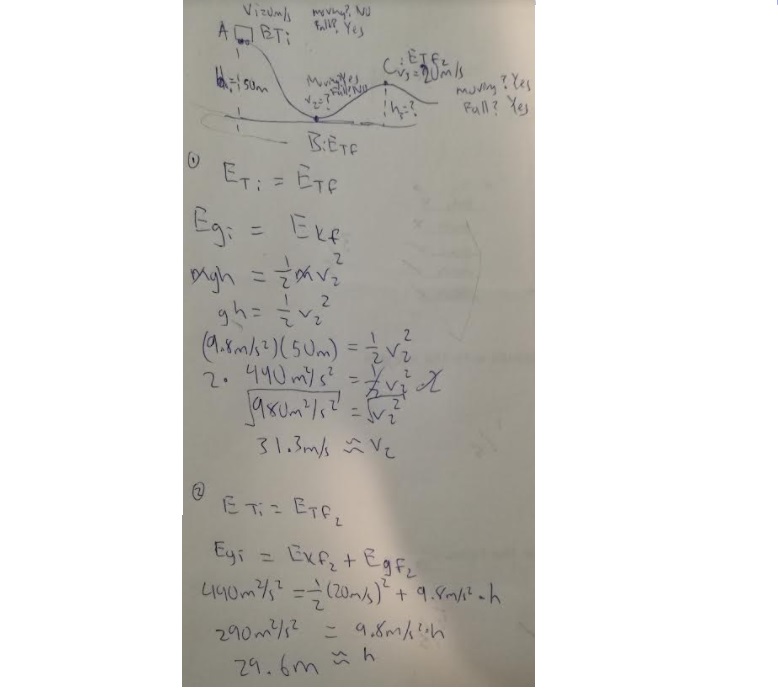 V₁=0m/s moving? No
Fall? Yes
A ETi
C: ETf₂
v₃=20m/s
h₁=50m
Moving? Yes
Fall? No
v₂=?
moving? Yes
Fall? Yes
h₃=?
B: ETf
①
ETi = ETf
Egi = Ekf
mgh = 1/2 mv₂²
gh = 1/2 v₂²
(9.8m/s²)(50m) = 1/2 v₂²
2· 490m²/s² = 1/2 v₂² ·2
√980m²/s² = √v₂²
31.3m/s ≈ v₂
②
ETi = ETf₂
Egi = Ekf₂ + Egf₂
490m²/s² = 1/2 (20m/s)² + 9.8m/s² · h
290m²/s² = 9.8m/s² · h
29.6m ≈ h